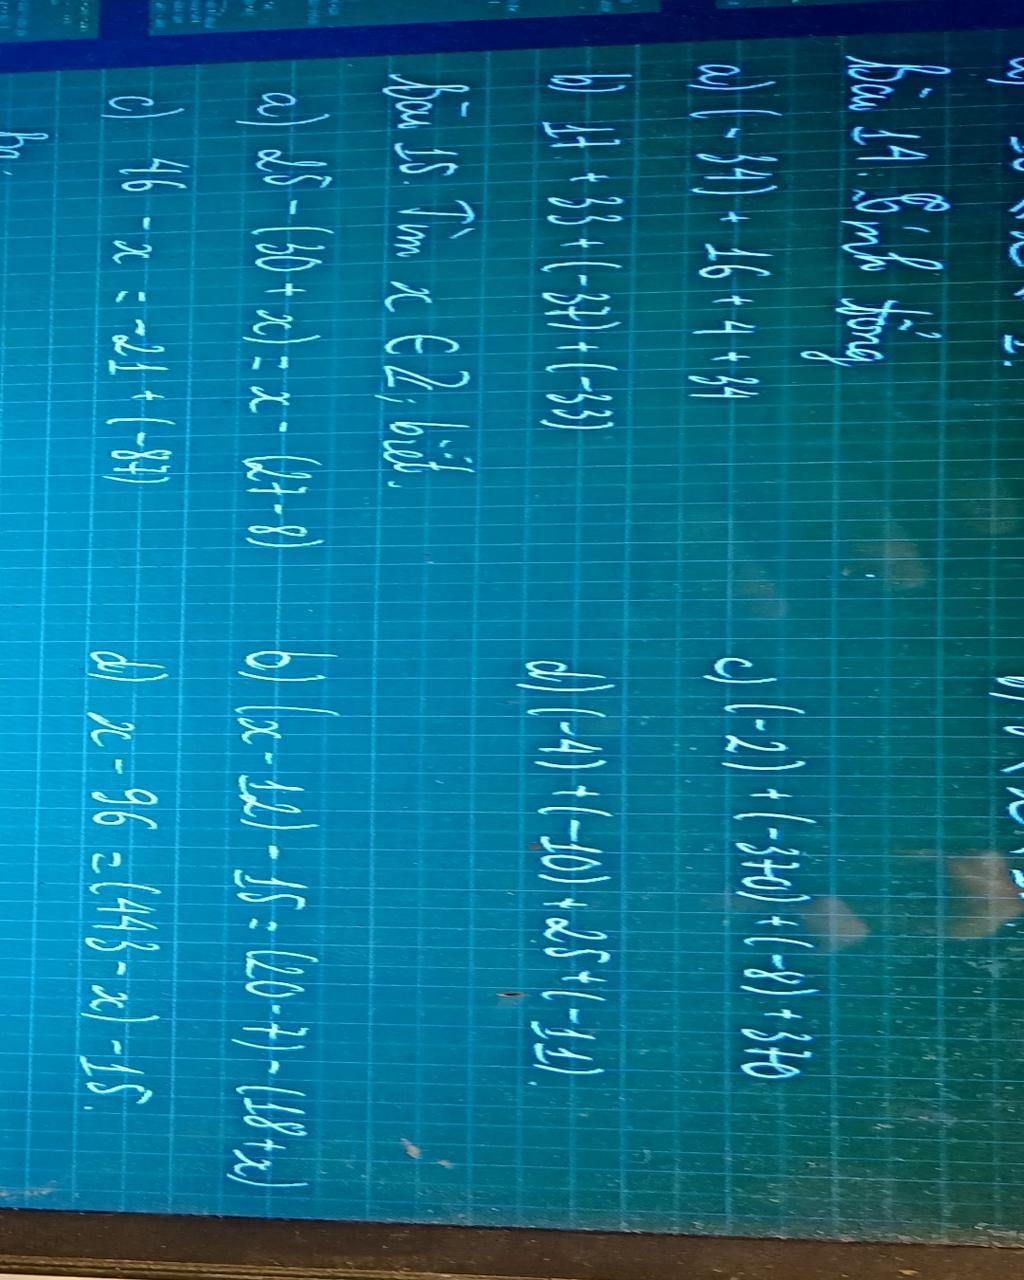 Bài 14: Tính tổng
a) (-34) + 16 + 4 + 34
c) (-2) + (-370) + (-8) + 370
b) 17 + 33 + (-37) + (-33)
d) (-4) + (-10) + 25 + (-11).
Bài 15. Tìm x ∈ Z; biết.
a) 25 - (30 + x) = x - (27-8)
b) (x - 12) - 15 = (20-7) - (18+x)
c) 46 - x = -21 + (-87)
d) x - 96 = (443 - x) - 15.